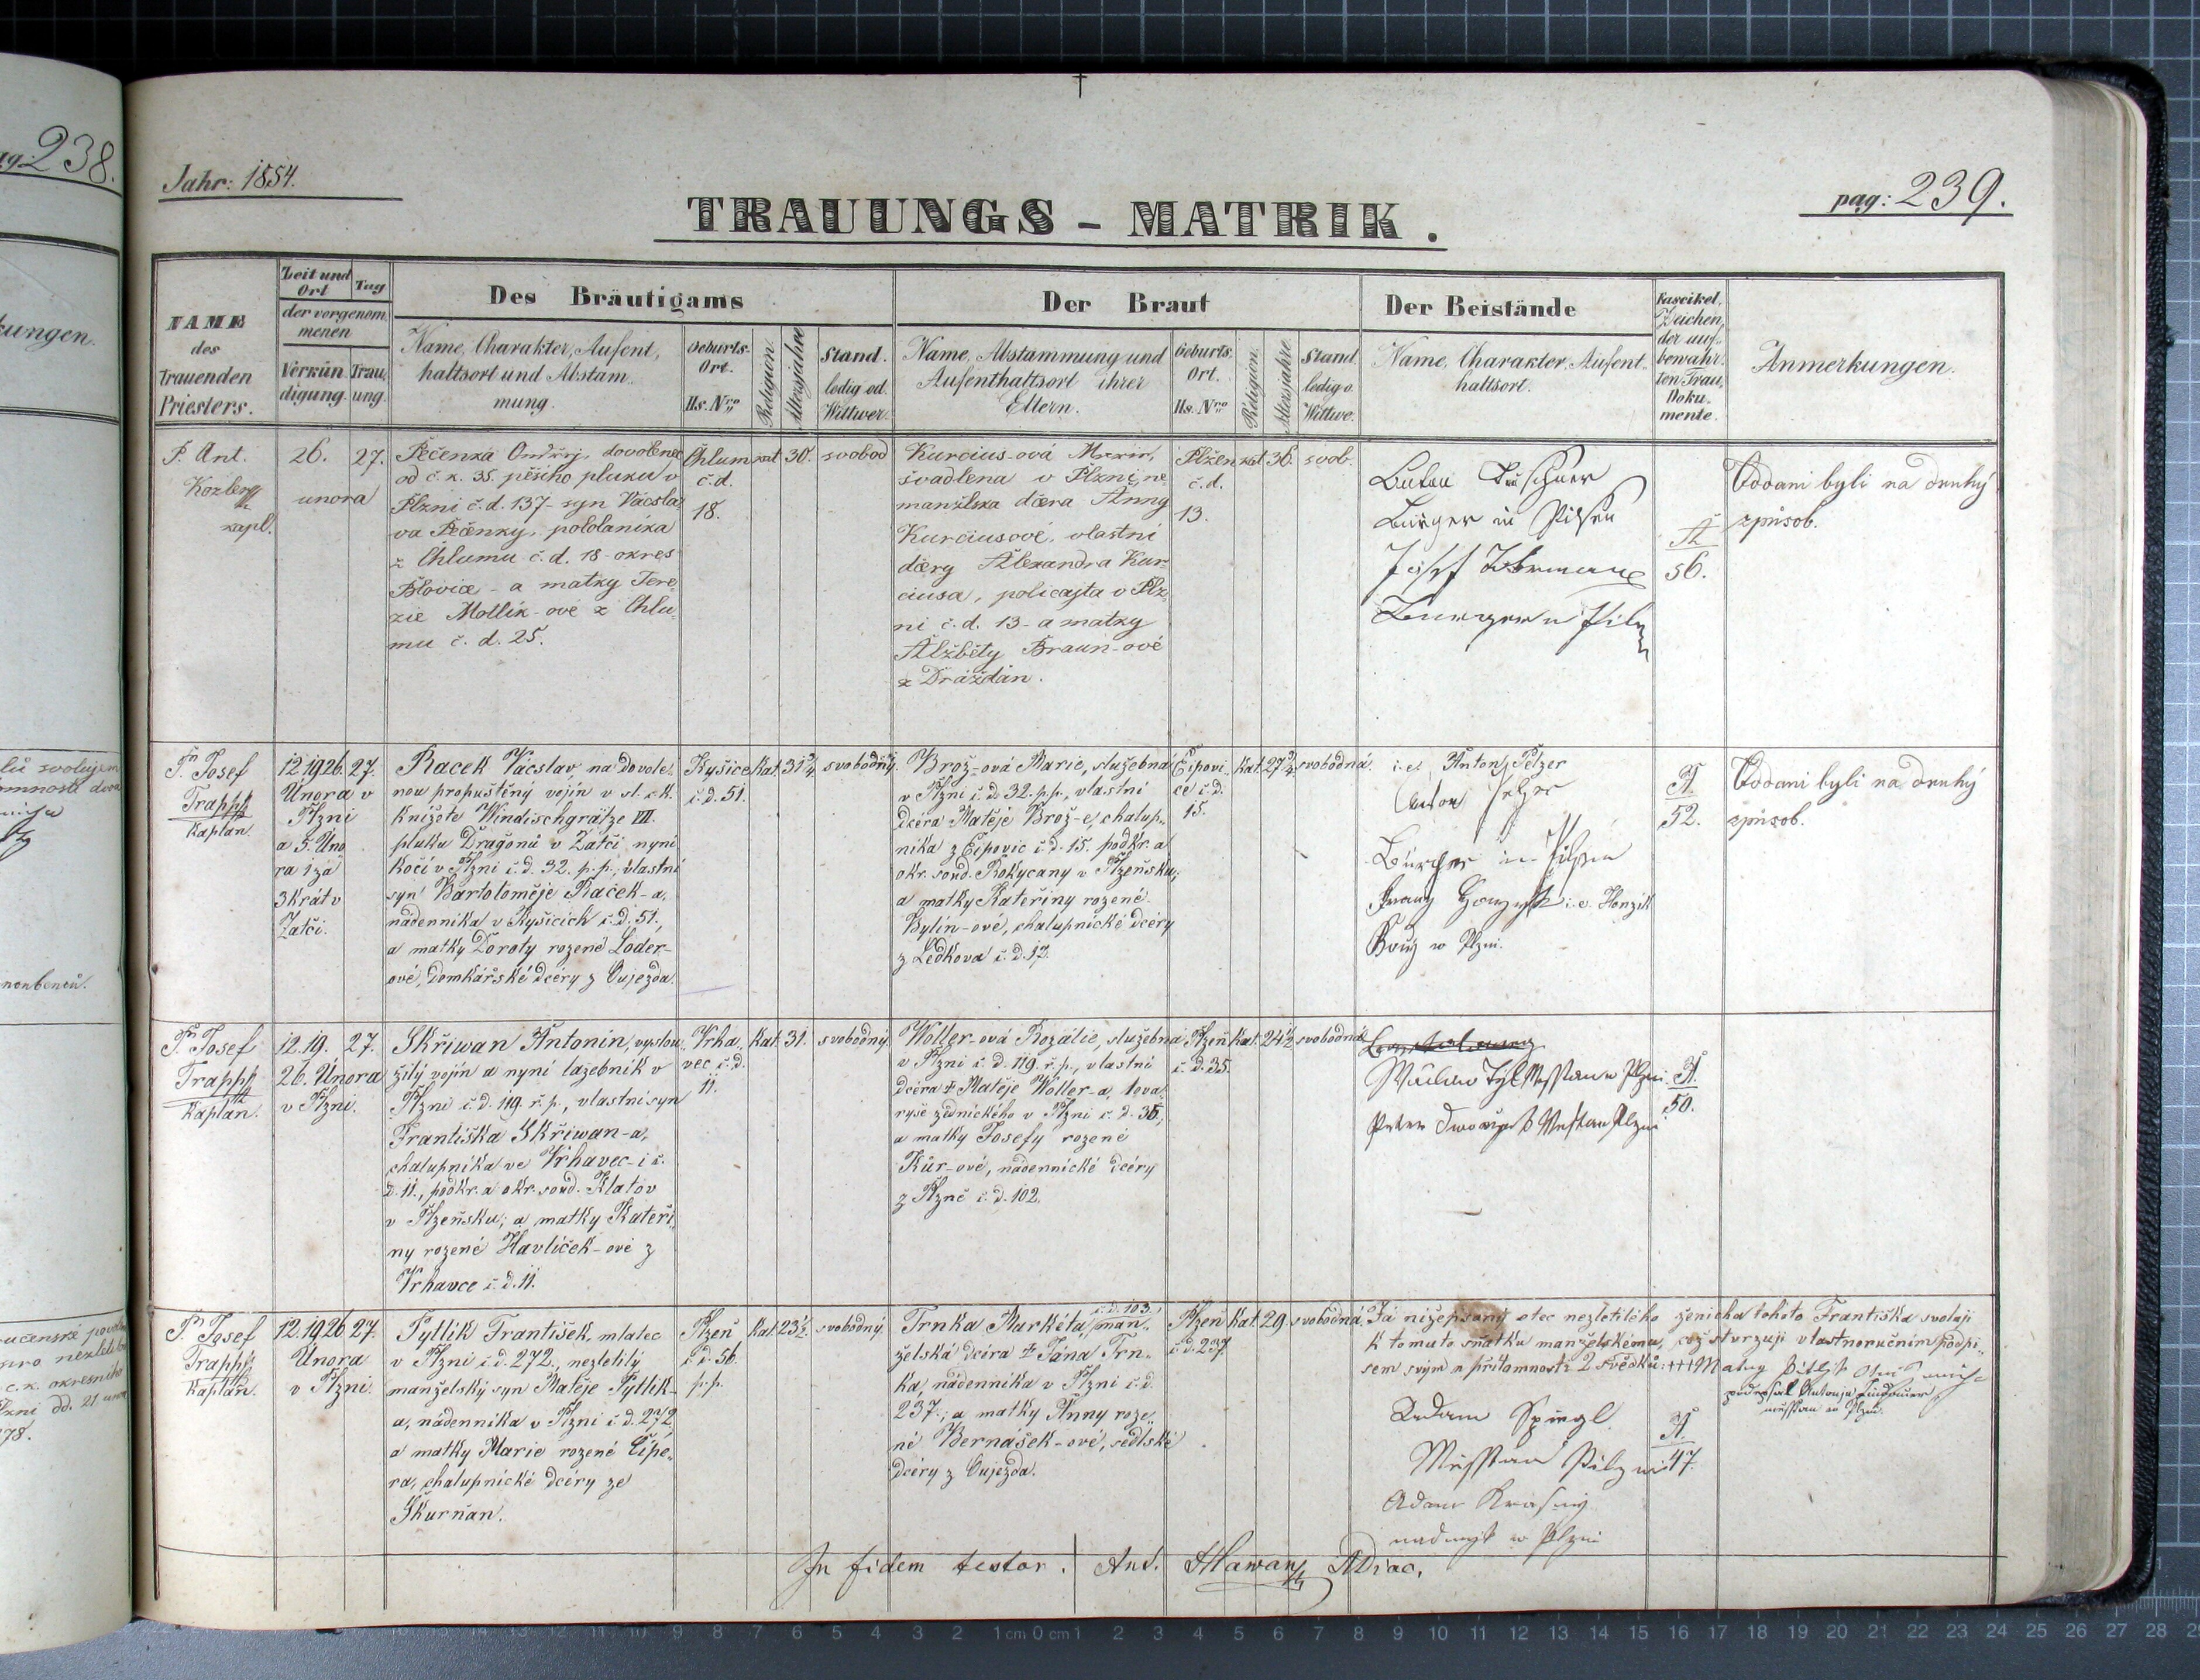 238.
Jahr: 1854.
pag: 239.
TRAUUNGS - MATRIK.
NAME des Trauenden Priesters.
Zeit und Ort
Tag
der vorgenommenen
Verkündigung.
Trauung.
Des Bräutigams
Name, Charakter, Aufenthaltsort und Abstammung.
Geburts-Ort. Hs. Nro
Religion.
Altersjahre
Stand. ledig od. Wittwer.
Der Braut
Name, Abstammung und Aufenthaltsort ihrer Eltern.
Geburts-Ort. Hs. Nro
Religion.
Altersjahre.
Stand ledig o. Wittwe.
Der Beistände
Name, Charakter, Aufenthaltsort.
Fascikel, Zeichen, der aufbewahrten Trau, Dokumente.
Anmerkungen.
P. Ant.
kapl.
26.
unora
27.
Pečenka Ondřej, dovolenec
od c. k. 35. pěšího pluku v
Plzni č.d. 137- syn Vácsla
va Pečenky, pololaníka
z Chlumu č.d. 18- okres
Blovice - a matky Tere
zie Mollik-ove z Chlu
mu č. d. 25.
Chlum
č.d.
18.
kat
30.
svobod
Kurcius-ová
švadlena v Plzni, ne
manželska dcera Anny
Kurciusové, vlastní
dcery Alexandra Kur
ciusa, policajta v Plz
ni č.d. 13- a matky
Alžběty Braun-ové
z Drážďan.
Plzen
č.d.
13.
kat
36.
svob.
Bürger in Pilsen
Josef
A
56.
Oddani byli na druhý
způsob.
P. Josef
Trapp
Kaplan.
12. 19. 26.
Unora v
Plzni
a 5. Úno
ra 1 za
3krát v
Žatči.
27.
Racek Vácslav, na dovole
nou propuštěný vojín v sl. c. k.
knížete Windischgrätze VII.
pluku Dragonů v Žatči nyní
kočí v Plzni č.d. 32. p.p., vlastní
syn Bartoloměje Racek-a,
nádenníka v Kyšicích č.d. 51.,
a matky Doroty rozené Loder-
ové, domkářské dcéry z Oujezda.
Kyšice
č.d. 51.
kat.
31 3/4
svobodný.
Brož-ová Marie, služebna
v Plzni č.d. 32. p.p., vlastní
dcéra Matěje Brož-e, chalup
níka z Ejpovic č.d. 15. podkr. a
okr. soud. Rokycany v Plzeňsku;
a matky Kateřiny rozené
Bylín-ové, chalupnické dcéry
z Ledkova č.d. 17.
Ejpovi
ce č.d.
15.
kat.
27 3/4
svobodná.
i.e. Anton Pelzer
Anton Pelzer
Bürger in Pilsen
Franz i.e. Honzik
A.
52.
Oddani byli na druhý
způsob.
P. Josef
Trapp
Kaplan.
12. 19.
26. Unora
v Plzni.
27.
Skřiwan Antonín, vyslou
žilý vojín a nyní lazebník v
Plzni č.d. 119. ř.p., vlastní syn
Františka Skřiwan-a,
chalupníka ve Vrhavec-i č.
d. 11., podkr. a okr. soud. Klatov
v Plzeňsku; a matky Kateři
ny rozené Havlíček-ové z
Vrhavce č.d. 11.
Vrha
vec č.d.
11.
kat.
31.
svobodný.
Woller-ová Rozálie, služebna
v Plzni č.d. 119. ř.p., vlastní
dcéra † Matěje Woller-a, tova
ryše zednického v Plzni č.d. 35,
a matky Josefy rozené
Kůr-ové, nádennické dcéry
z Plzně č.d. 102.
Plzeň
č.d. 35.
kat.
24 1/2
svobodná
A.
50.
P. Josef
Trapp
Kaplan.
12. 19. 26
Unora
v Plzni.
27.
Pytlík František, mlatec
v Plzni č.d. 272., nezletilý
manželský syn Matěje Pytlík-
a, nádenníka v Plzni č.d. 272
a matky Marie rozené Čipe
ra, chalupnické dcéry ze
Skurňan.
Plzeň
č.d. 56.
p.p.
kat
23 1/2.
svobodný.
Trnka Markéta, č.d. 103. man
želská dcéra † Jána Trn
ka, nádenníka v Plzni č.d.
237.; a matky Anny roze
né Bernášek-ové, sedlské
dcéry z Oujezda.
Plzeň
č.d. 237.
kat.
29.
svobodná.
Já nížepsaný otec nezletilého ženicha tohoto Františka svoluji
k tomuto sňatku manželskému, což stvrzuji vlastnoručním podpi
sem svým u přítomnosti 2 svědků: +++
Adam Spiegl
A.
47.
Adam Krasny
In fidem testor. Ant. Hlawan